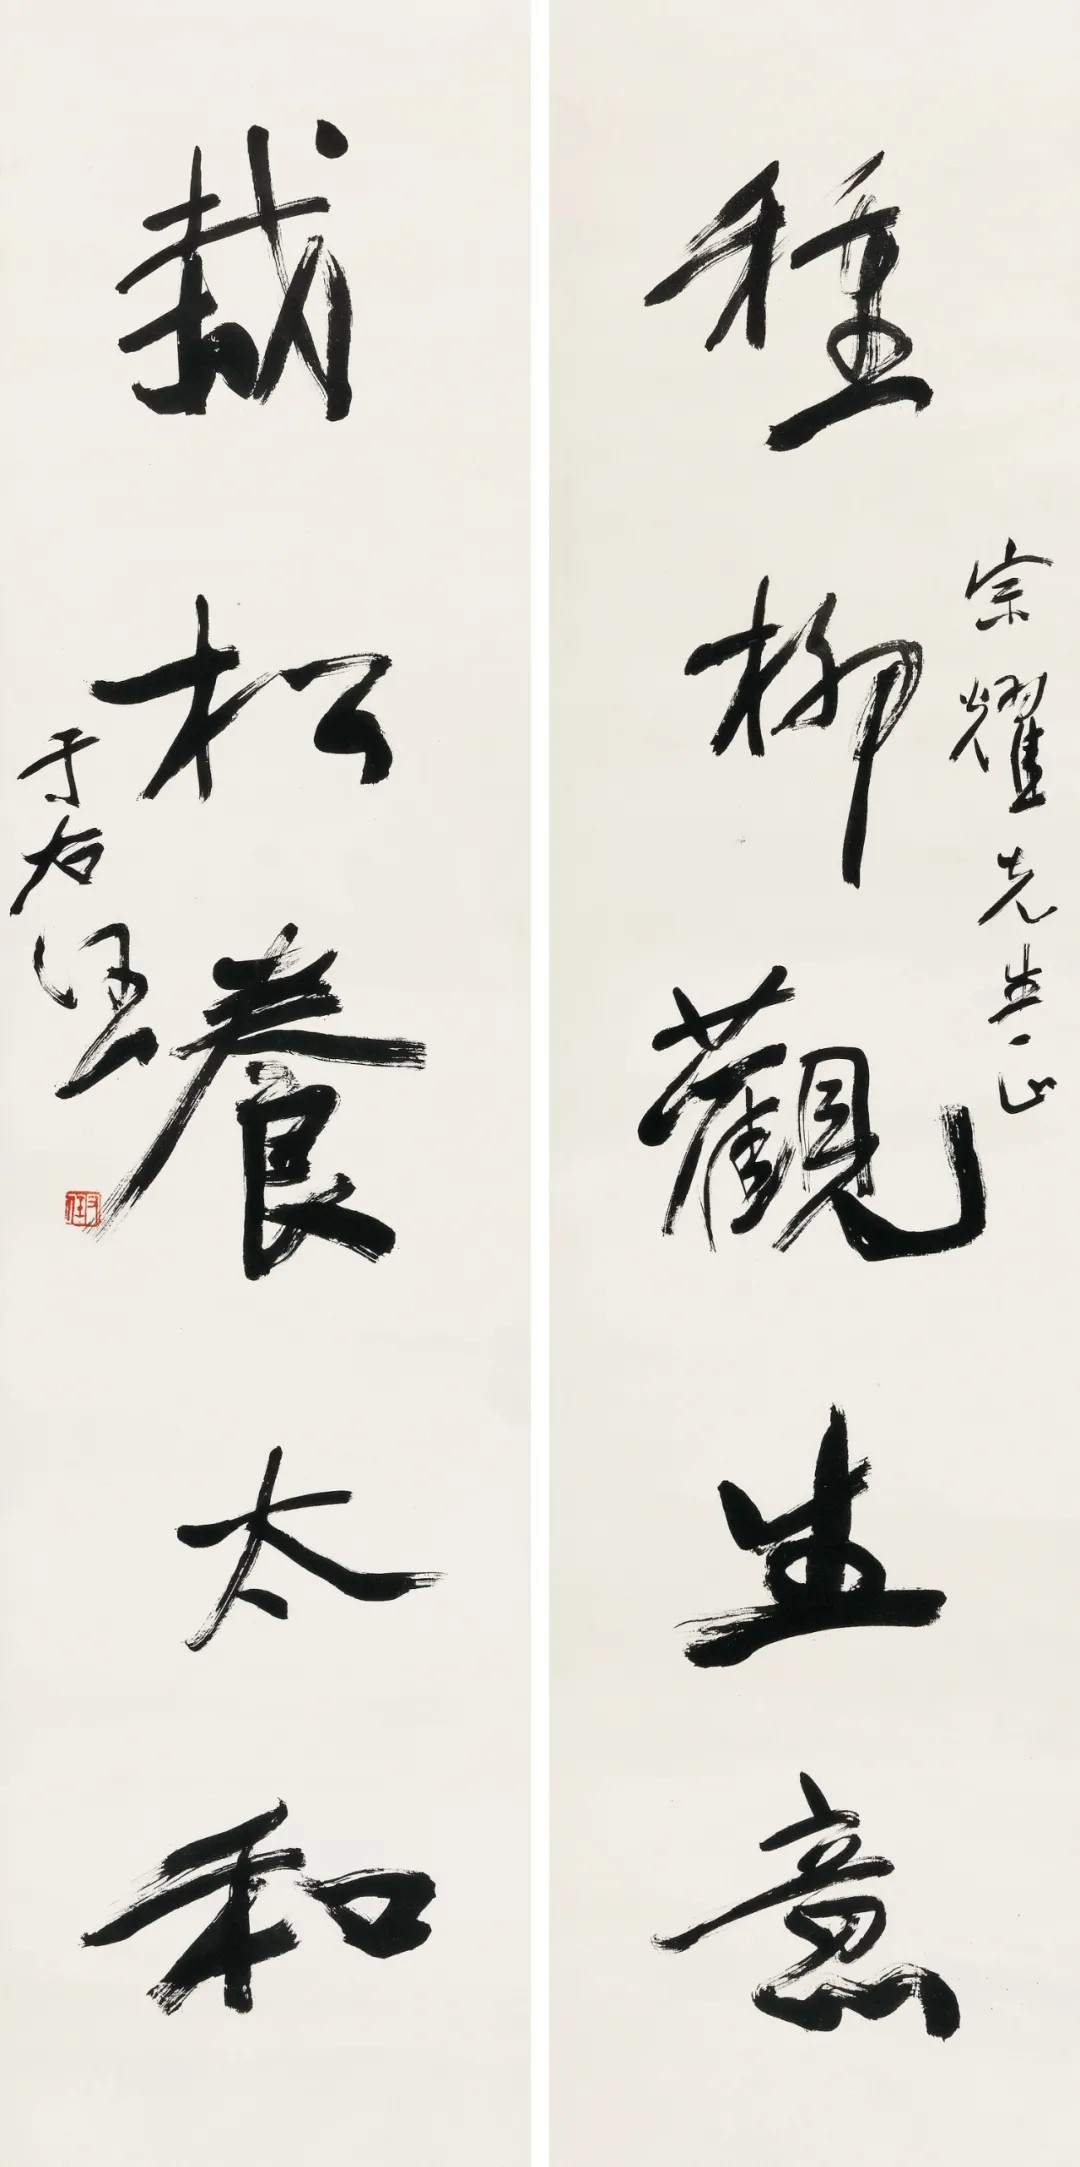 種柳觀生意
宗耀先生正
栽松養太和
于右任